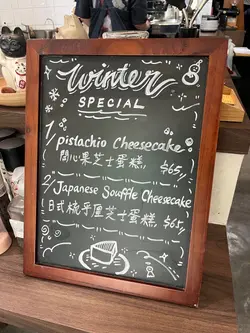 Winter
SPECIAL
1/ pistachio Cheesecake
開心果芝士蛋糕 $65/
2/ Japanese Souffle Cheesecake
日式梳乎厘芝士蛋糕 $65/